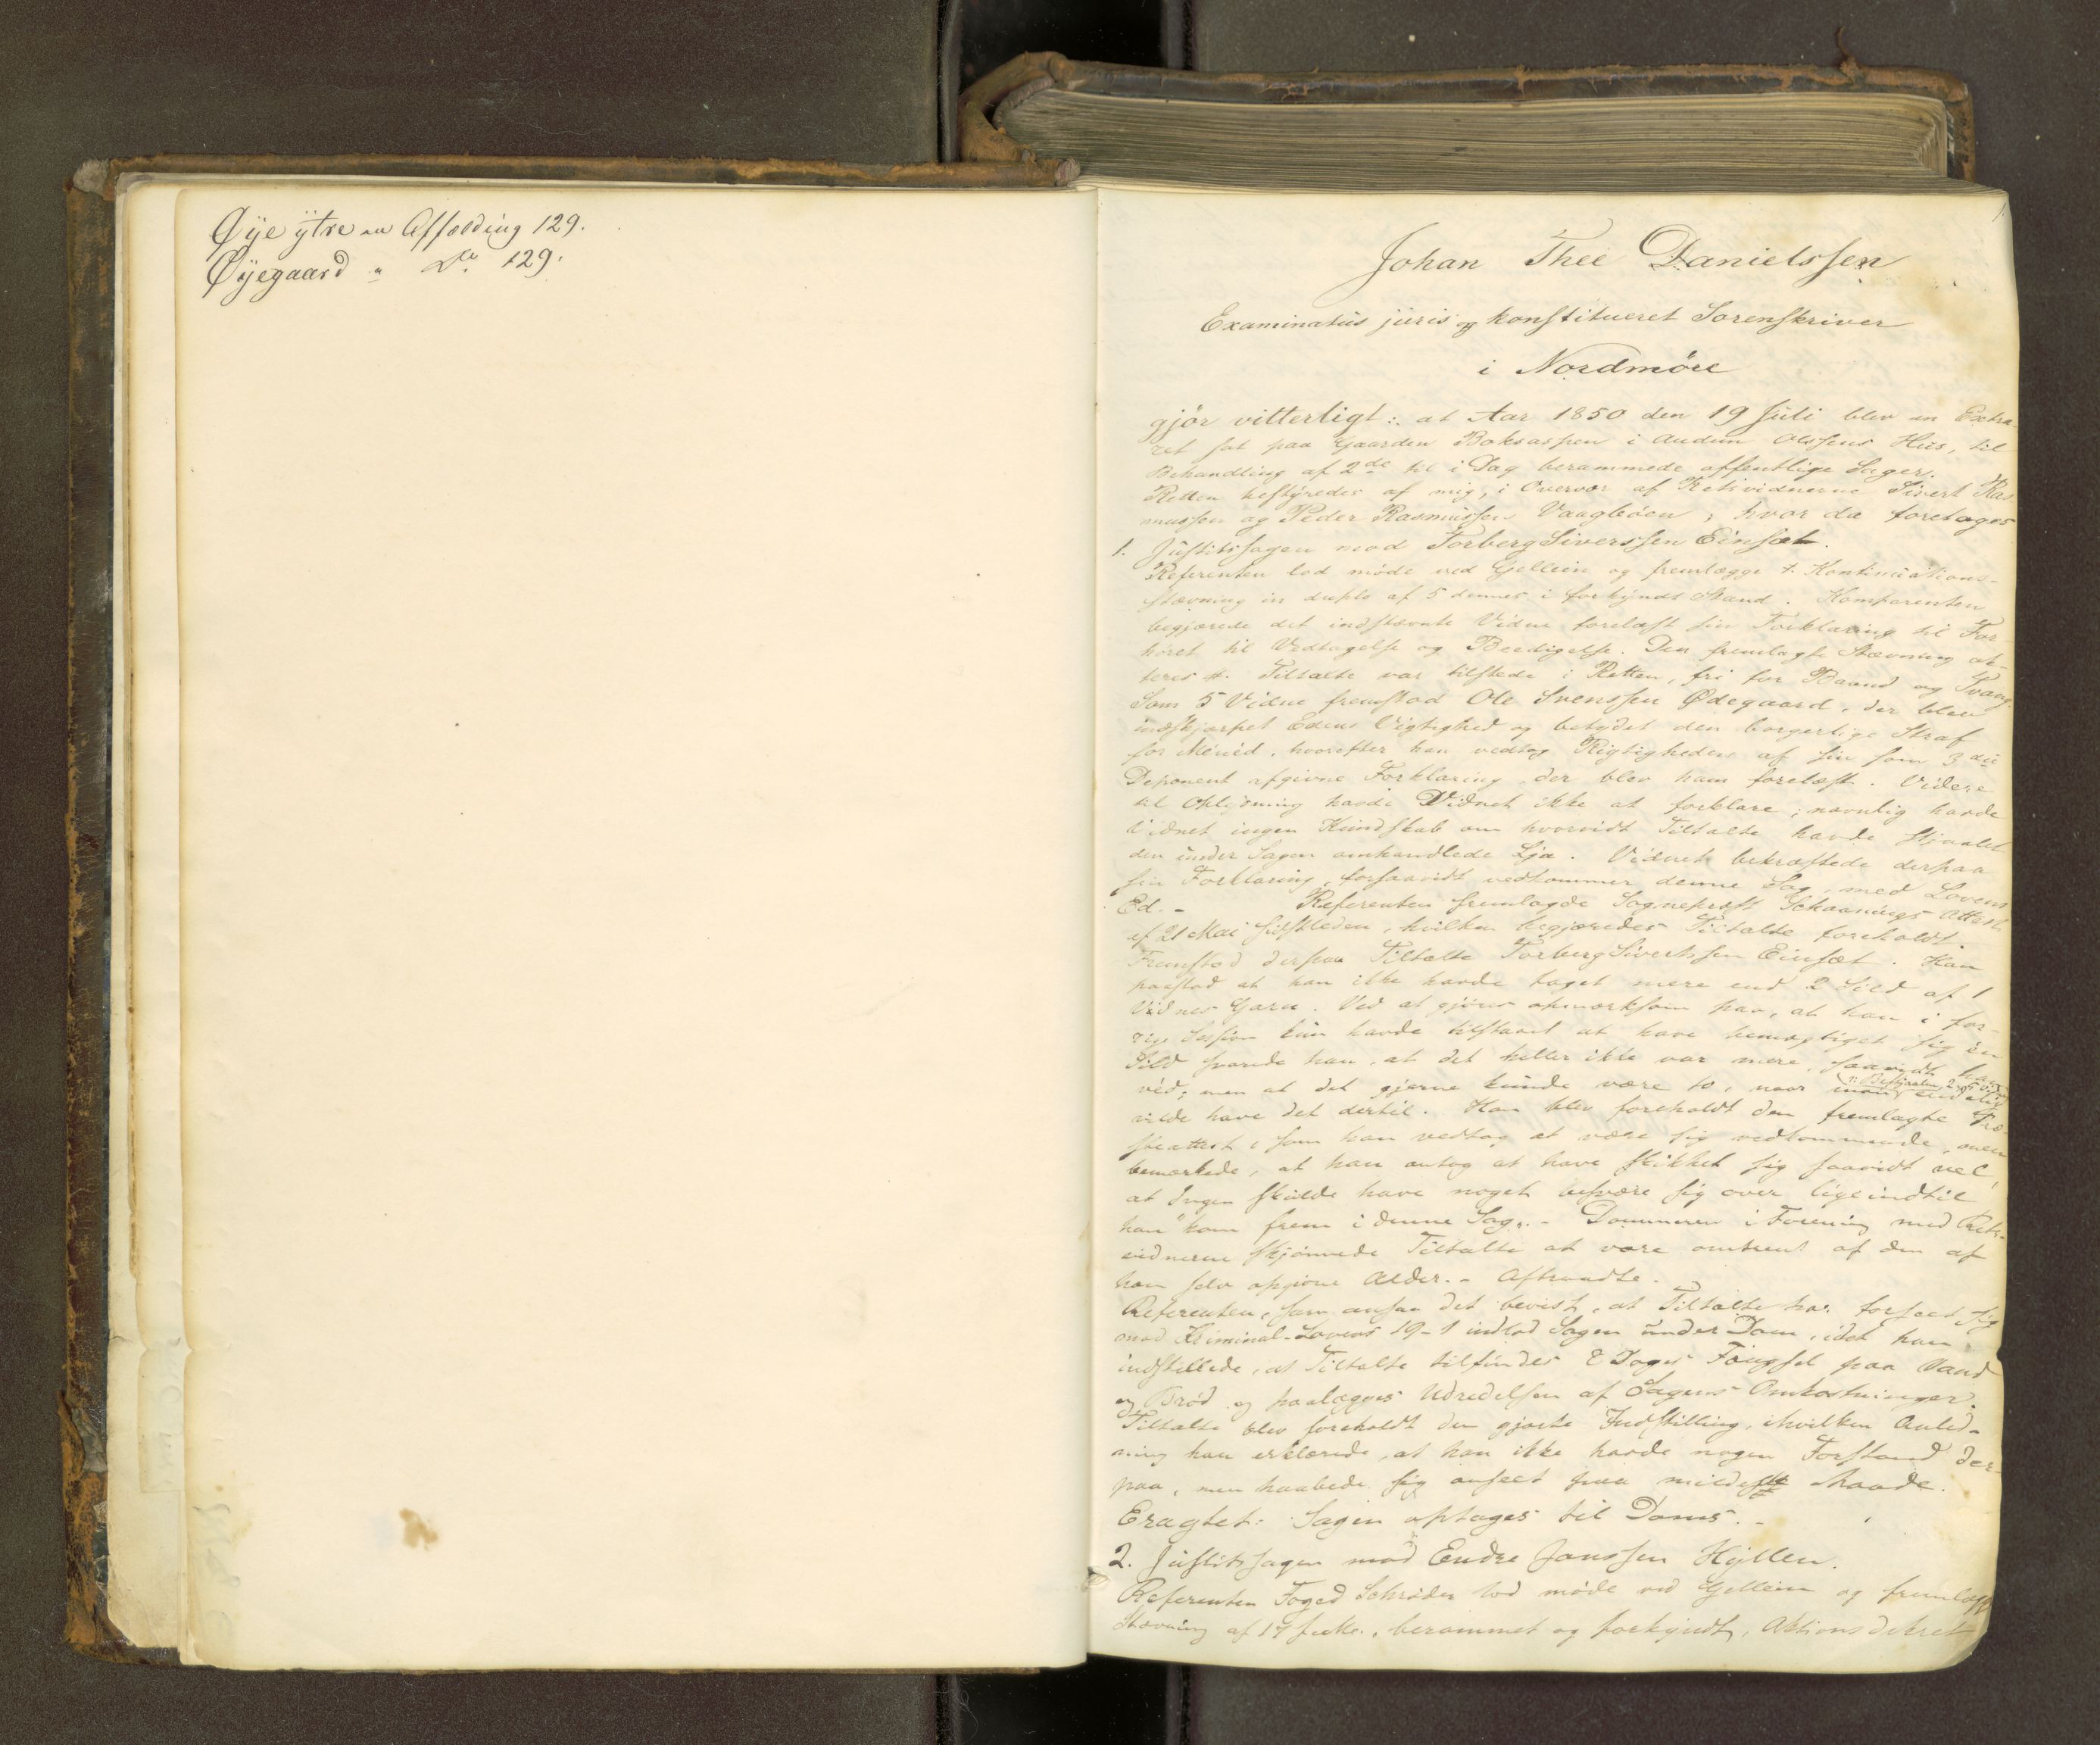 Øÿe ÿtre „ Affælding 129.
Øÿegaard „ Do 129.
1.
Johan Thee Danielssen
Examinatus juris og konstitueret Sorenskriver
i Nordmöre
gjör vitterligt: at Aar 1850 den 19 Juli blev en Extra-
ret sat paa Gaarden Boksaspen i Audun Olssens Hus, til
Behandling af 2de til i Dag berammede offentlige Sager.
Retten bestyredes af mig, i Overvær af Retsvidnerne Sivert Ras
mussen og Peder Rasmussen Vaagbøen, hvor da foretoges
1. Justitssagen mod Torberg Siverssen Einset.
Referenten lod møde ved Gellein og fremlægge t. Kontinuations-
stævning in duplo af 5 dennes i forkyndt Stand. Komparenten
begjærede det indstævnte Vidne forelæst sin Forklaring til For-
höret til Vedtagelse og Beedigelse. Den fremlagte Stævning ak-
teres t. Tiltalte var tilstede i Retten, fri for Baand og Tvang.
Som 5 Vidne fremstod Ole Svenssen Ødegaard, der blev
indskjærpet Edens Vigtighed og betydet den borgerlige Straf
for Meneed, hvorefter han vedtog Rigtigheden af sin som 3die
Deponent afgivne Forklaring, der blev ham forelæst. Videre
til Oplysning havde Vidnet ikke at forklare; navnlig havde
Vidnet ingen Kundskab om hvorvidt Tiltalte havde stjaalet
den under Sagen omhandlede Lja. Vidnet bekræftede derpaa
sin Forklaring, forsaavidt vedkommer denne Sag, med Lovens
Ed. - Referenten fremlagde Sognepræst Schaanings Attest
af 21 Mai sidstleden, hvilken begjæredes Tiltalte foreholdt.
Fremstod derpaa Tiltalte Torberg Sivertssen Einsæt. Han
paastod at han ikke havde taget mere end 2 Sild af 1
Vidnes Garn. Ved at gjöres opmærksom paa, at han i for-
rige Session kun havde tilstaaet at have bemægtiget sig én
Sild svarede han, at det heller ikke var mere, saavidt han
véd; men at det gjerne kunde være to, naar
vilde have det dertil. Han blev foreholdt den fremlagte Præ-
steattest, som han vedtog at være sig vedkommende, men
bemærkede, at han antog at have skikket sig saavidt vel,
at Ingen skulde have noget besvære sig over ligeindtil
han "kom frem i denne Sag". - Dommeren i Forening med Rets-
vidnerne skjönnede Tiltalte at være omtrent af den af
ham selv opgivne Alder. - Aftraadte.
Referenten, som ansaa det bevist, at Tiltalte har forseet sig
mod Kriminal-Lovens 19-1 indlod Sagen under Dom, idet han
indstillede, at Tiltalte tilfindes 8 Dages Fængsel paa Vand
og Bröd og paalægges Udredelsen af Sagens Omkostninger.
Tiltalte blev foreholdt den gjorte Indstilling, i hvilken Anled-
ning han erklærede, at han ikke havde nogen Forstand der-
paa, men haabede sig anseet paa mildeste Maade.
Eragtet: Sagen optages til Doms. -
2. Justitssagen mod Endre Jonssen Hyllen.
Referenten Foged Schröder lod møde ved Gellein og fremlagde
Stævning af 17 f. M., berammet og forkyndt, Aktionsdekret